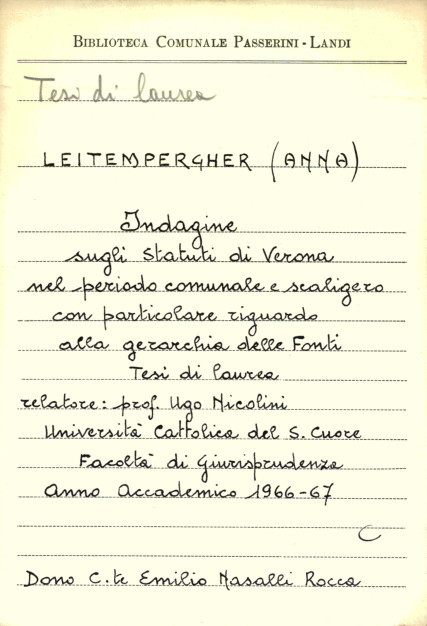 BIBLIOTECA COMUNALE PASSERINI - LANDI
Tesi di laurea
LEITEMPERGHER (ANNA)
Indagine
sugli Statuti di Verona
nel periodo comunale e scaligero
con particolare riguardo
alla gerarchia delle Fonti
Tesi di laurea
relatore: prof. Ugo Nicolini
Università Cattolica del S. Cuore
Facoltà di Giurisprudenza
Anno Accademico 1966-67
C
Dono C.te Emilio Nasalli Rocca